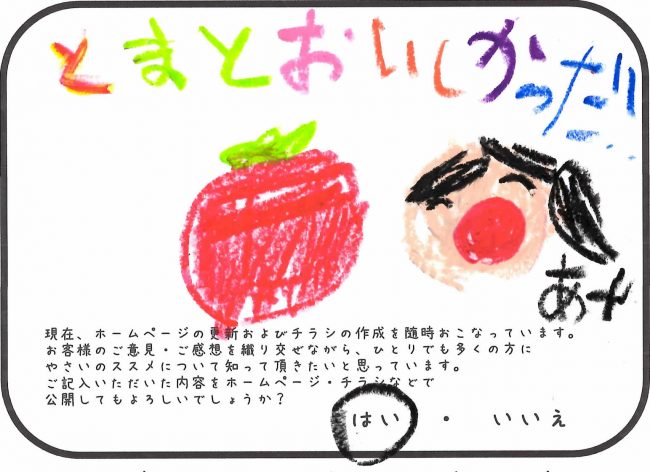 とまとおいしかったよ!!
現在、ホームページの更新およびチラシの作成を随時おこなっています。
お客様のご意見・ご感想を織り交ぜながら、ひとりでも多くの方に
やさいのススメについて知って頂きたいと思っています。
ご記入いただいた内容をホームページ・チラシなどで
公開してもよろしいでしょうか?
はい ・ いいえ